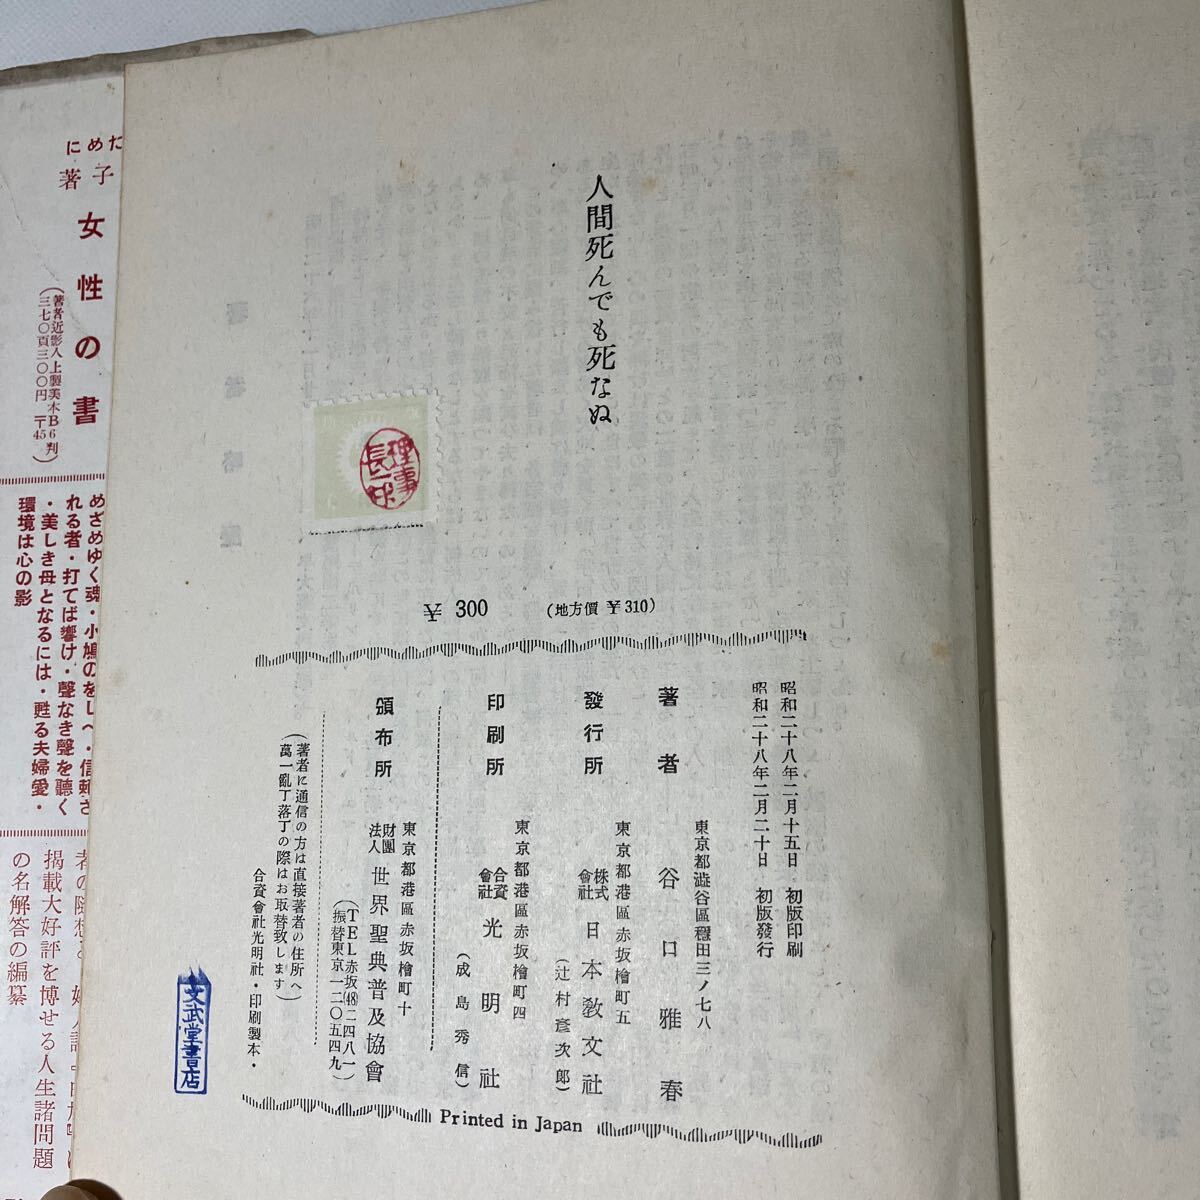 人間死んでも死なぬ
理事
長印
¥ 300
(地方價 ¥ 310)
昭和二十八年二月十五日 初版印刷
昭和二十八年二月二十日 初版發行
東京都澁谷區穩田三ノ七八
著者 谷口雅春
東京都港區赤坂檜町五
發行所 株式會社 日本敎文社
(辻村彥次郎)
東京都港區赤坂檜町四
印刷所 合資會社 光明社
(成島秀信)
東京都港區赤坂檜町十
頒布所 財團法人 世界聖典普及協會
(TEL赤坂(48)二四八一)
(振替東京一二〇五四九)
(著者に通信の方は直接著者の住所へ)
萬一亂丁落丁の際はお取替致します
合資會社光明社・印刷製本・
Printed in Japan
文武堂書店
ために
子著
女性の書
(著者近影入上製美本B6判
三七〇頁三〇〇円 〒45)
めざめゆく魂・小鳩のをしへ・信頼さ
れる者・打てば響け・聲なき聲を聽く
・美しき母となるには・甦る夫婦愛・
環境は心の影
掲載大好評を博せる人生諸問題
の名解答の編纂